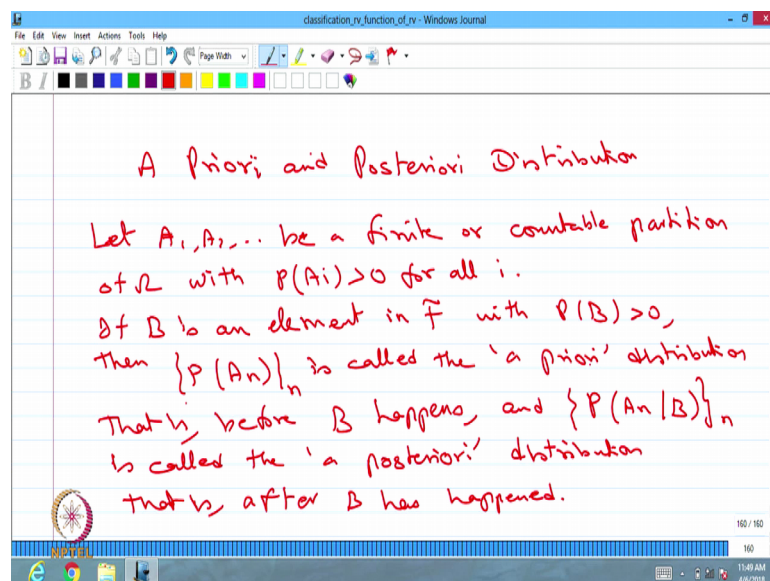 classification_rv_function_of_rv - Windows Journal
File Edit View Insert Actions Tools Help
Page Width
B I
A Priori and Posteriori Distribution
Let A1, A2, ... be a finite or countable partition
of Ω with P(Ai) >0 for all i.
If B is an element in F with P(B) >0,
then {P(An)}n is called the 'a priori' distribution
that is, before B happens, and {P(An|B)}n
is called the 'a posteriori' distribution
that is, after B has happened.
NPTEL
160 / 160
160
11:49 AM
4/6/2018